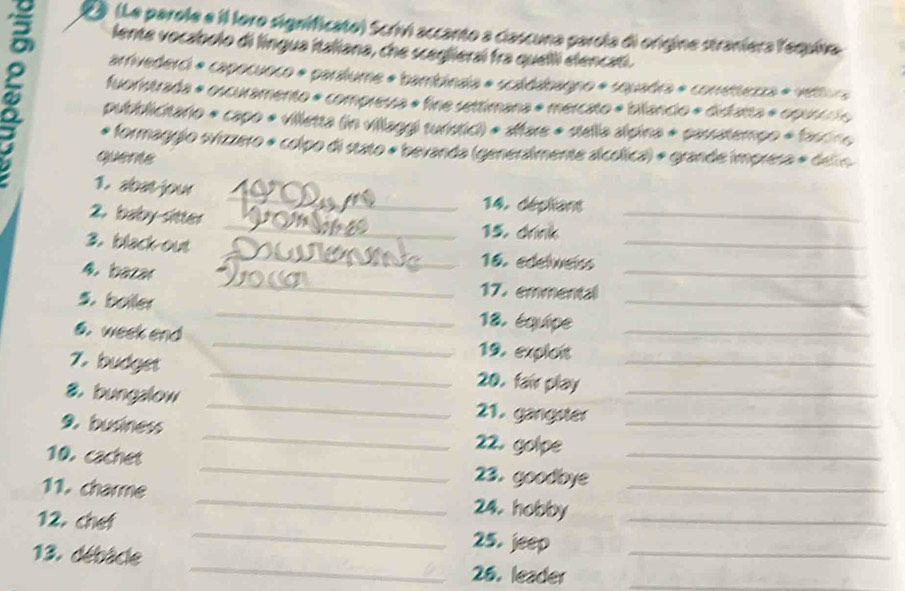 Recupero guid
(Le parole e il loro significato) Scrivi accanto a ciascuna parola di origine straniera l'equiva-
lente vocabolo di lingua italiana, che sceglierai fra quelli elencati.
arrivederci • capocuoco • paralume • bambinaia • scaldabagno • squadra • correttezza • vettura
fuoristrada • oscuramento • compressa • fine settimana • mercato • bilancio • disfatta • opuscolo
pubblicitario • capo • villetta (in villaggi turistici) • affare • stella alpina • passatempo • fascino
• formaggio svizzero • colpo di stato • bevanda (generalmente alcolica) • grande impresa • delin-
quente
1. abat-jour
2. baby-sitter
3. black-out
4. bazar
5. boiler
6. week end
7. budget
8. bungalow
9. business
10. cachet
11. charme
12. chef
13. débâcle
14. dépliant
15. drink
16. edelweiss
17. emmental
18. équipe
19. exploit
20. fair play
21. gangster
22. golpe
23. goodbye
24. hobby
25. jeep
26. leader